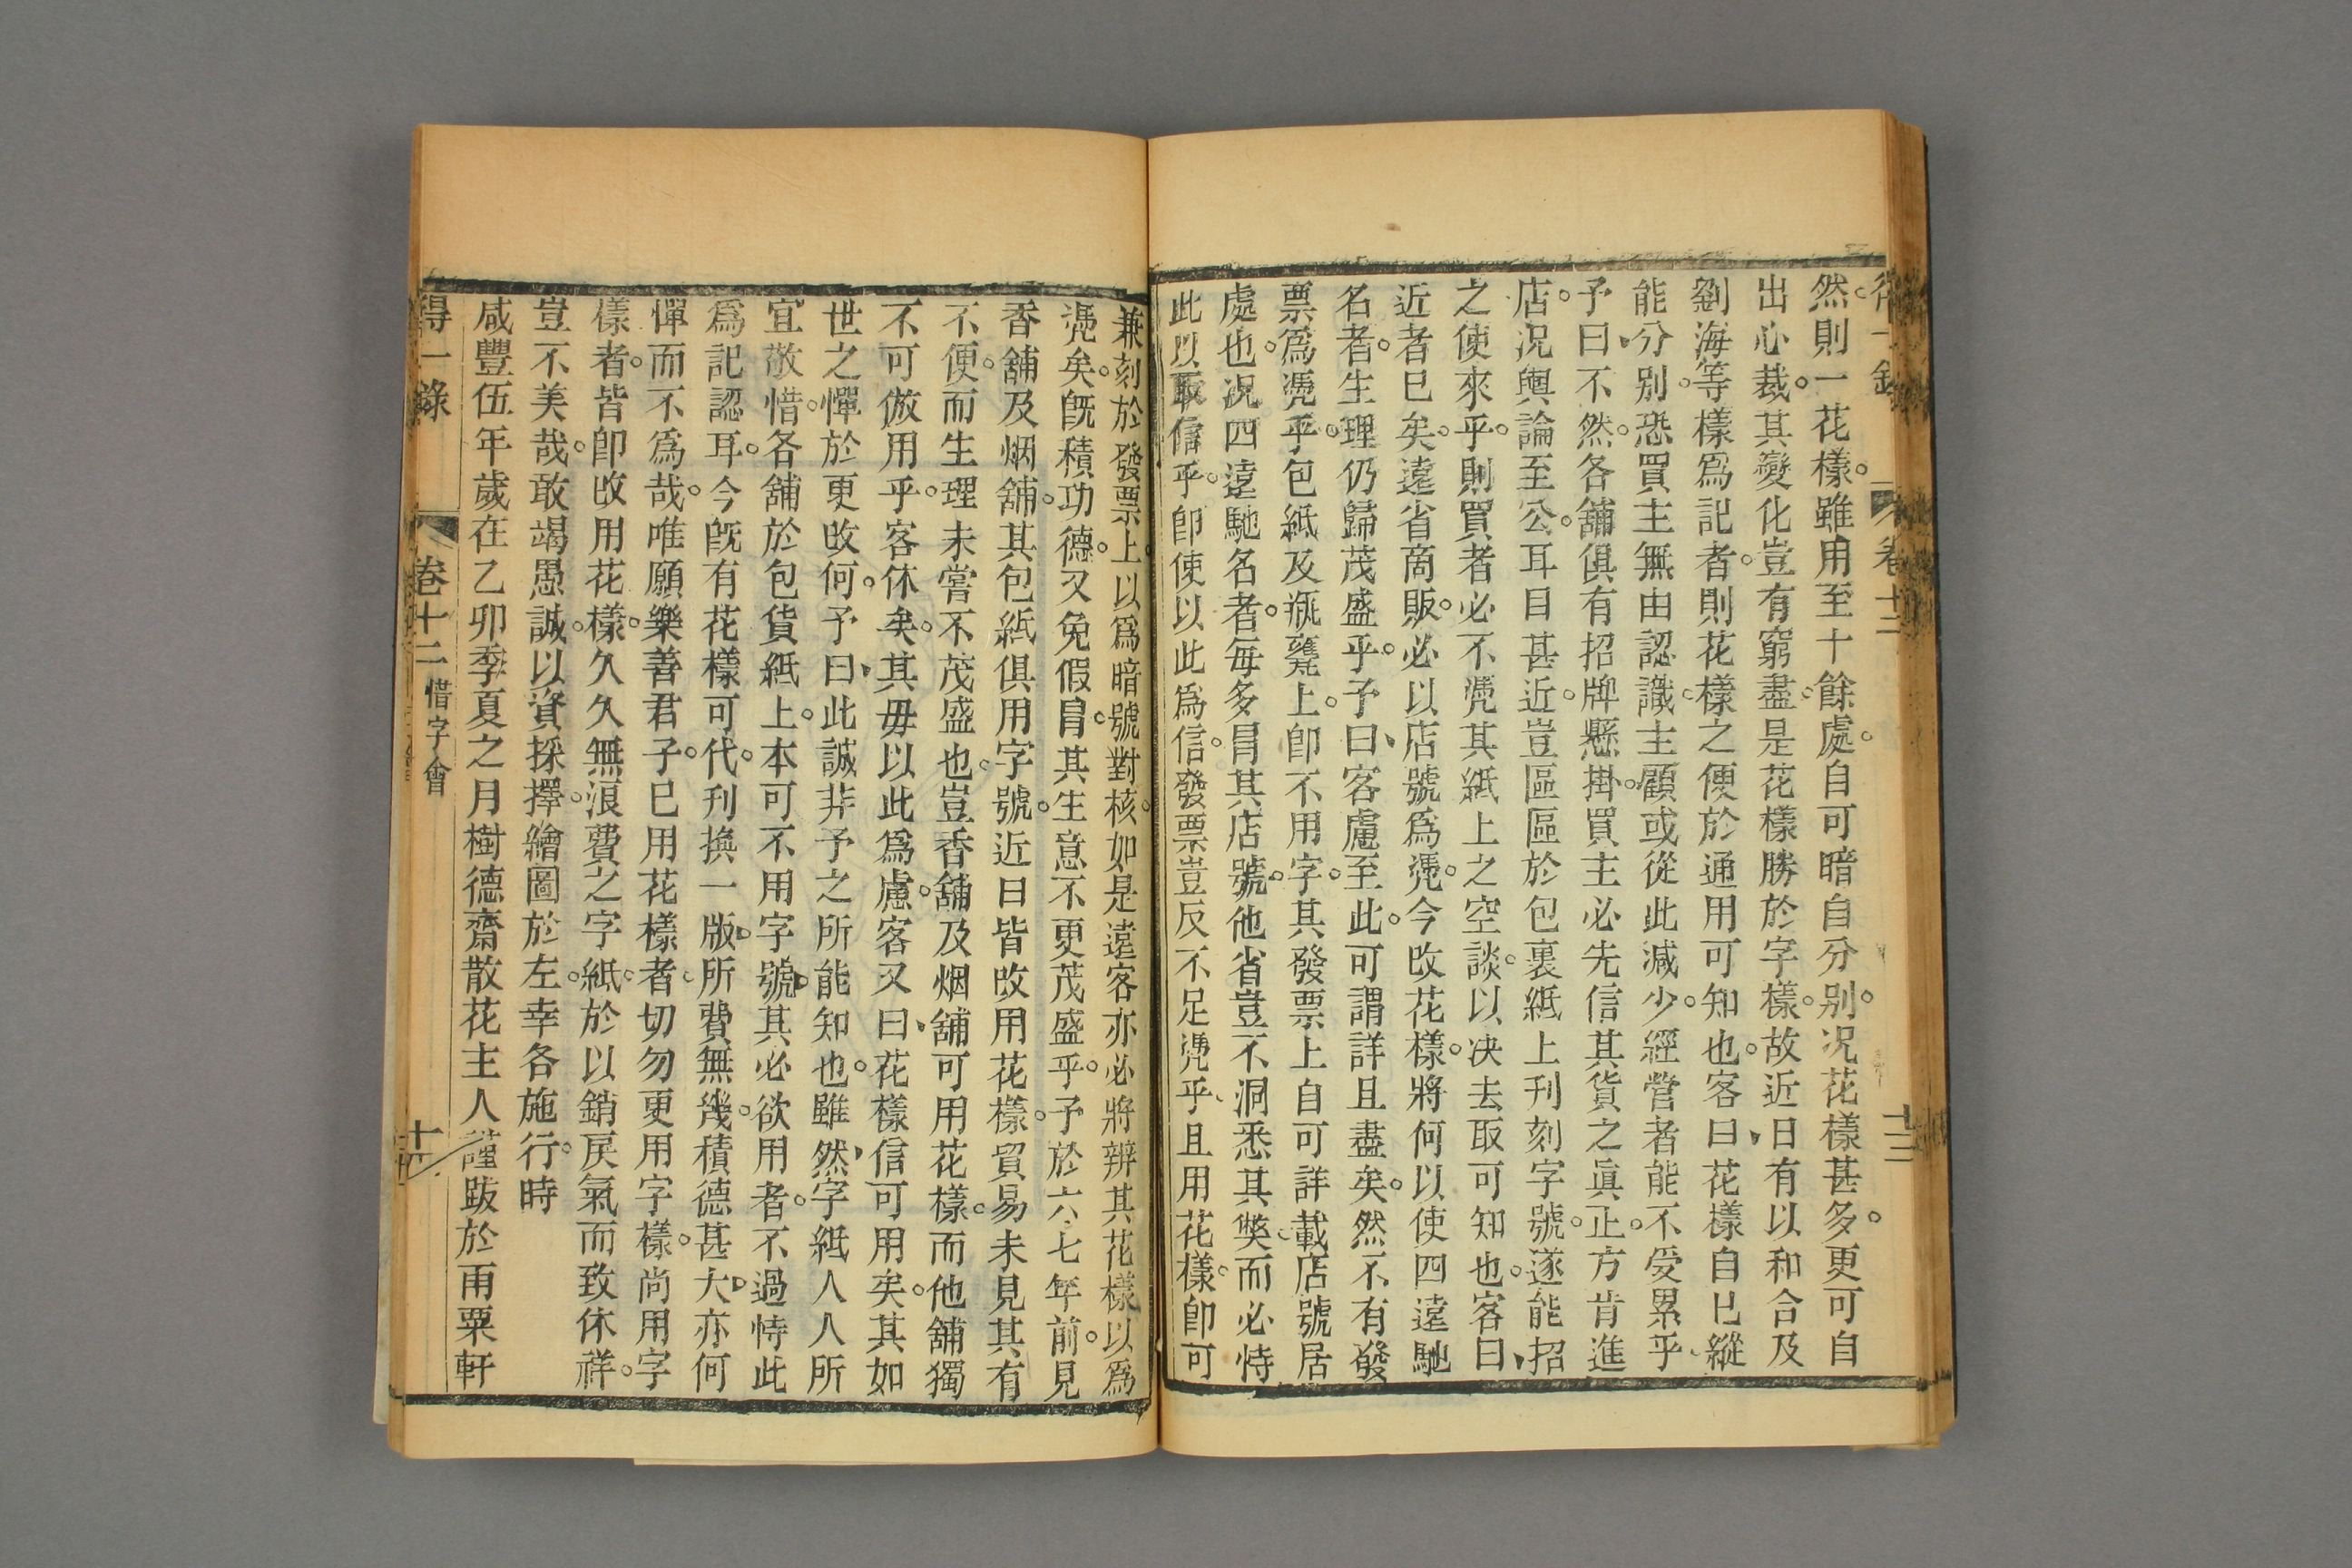 得一錄 卷十二 十三
然則一花樣。雖用至十餘處。自可暗自分別。况花樣甚多。更可自
出心裁。其變化豈有窮盡。是花樣勝於字樣。故近日有以和合及
劉海等樣爲記者。則花樣之便於通用可知也。客曰、花樣自已縱
能分別。恐買主無由認識。主顧或從此減少。經營者能不受累乎。
予曰、不然。各舖俱有招牌懸掛。買主必先信其貨之眞正。方肯進
店。况輿論至公。耳目甚近。豈區區於包裹紙上刊刻字號。遂能招
之使來乎。則買者必不凴其紙上之空談。以决去取可知也。客曰、
近者已矣。遠省商販。必以店號爲凴。今改花樣。將何以使四遠馳
名者。生理仍歸茂盛乎。予曰、客慮至此。可謂詳且盡矣。然不有發
票爲凴乎。包紙及瓶甕上。卽不用字。其發票上自可詳載店號居
處也。况四遠馳名者。每多冒其店號。他省豈不洞悉其獘。而必恃
此以取信乎。卽使以此爲信。發票豈反不足凴乎、且用花樣。卽可
兼刻於發票上。以爲暗號對核。如是遠客亦必將辨其花樣以爲
凴矣。旣積功德。又免假冒。其生意不更茂盛乎。予於六七年前。見
香舖及烟舖。其包紙俱用字號。近日皆改用花樣。貿易未見其有
不便。而生理未嘗不茂盛也。豈香舖及烟舖可用花樣。而他舖獨
不可倣用乎。客休矣。其毋以此爲慮。客又曰、花樣信可用矣。其如
世之憚於更改何。予曰、此誠非予之所能知也。雖然、字紙人人所
宜敬惜。各舖於包貨紙上。本可不用字號、其必欲用者。不過恃此
爲記認耳。今旣有花樣可代。刊換一版、所費無幾。積德甚大、亦何
憚而不爲哉。唯願樂善君子。已用花樣者。切勿更用字樣。尚用字
樣者。皆卽改用花樣。久久無浪費之字紙。於以銷戾氣而致休祥。
豈不美哉。敢竭愚誠。以資採擇。繪圖於左。幸各施行。時
咸豐伍年歲在乙卯季夏之月樹德齋散花主人謹跋於雨粟軒
得一錄 卷十二 惜字會 十四